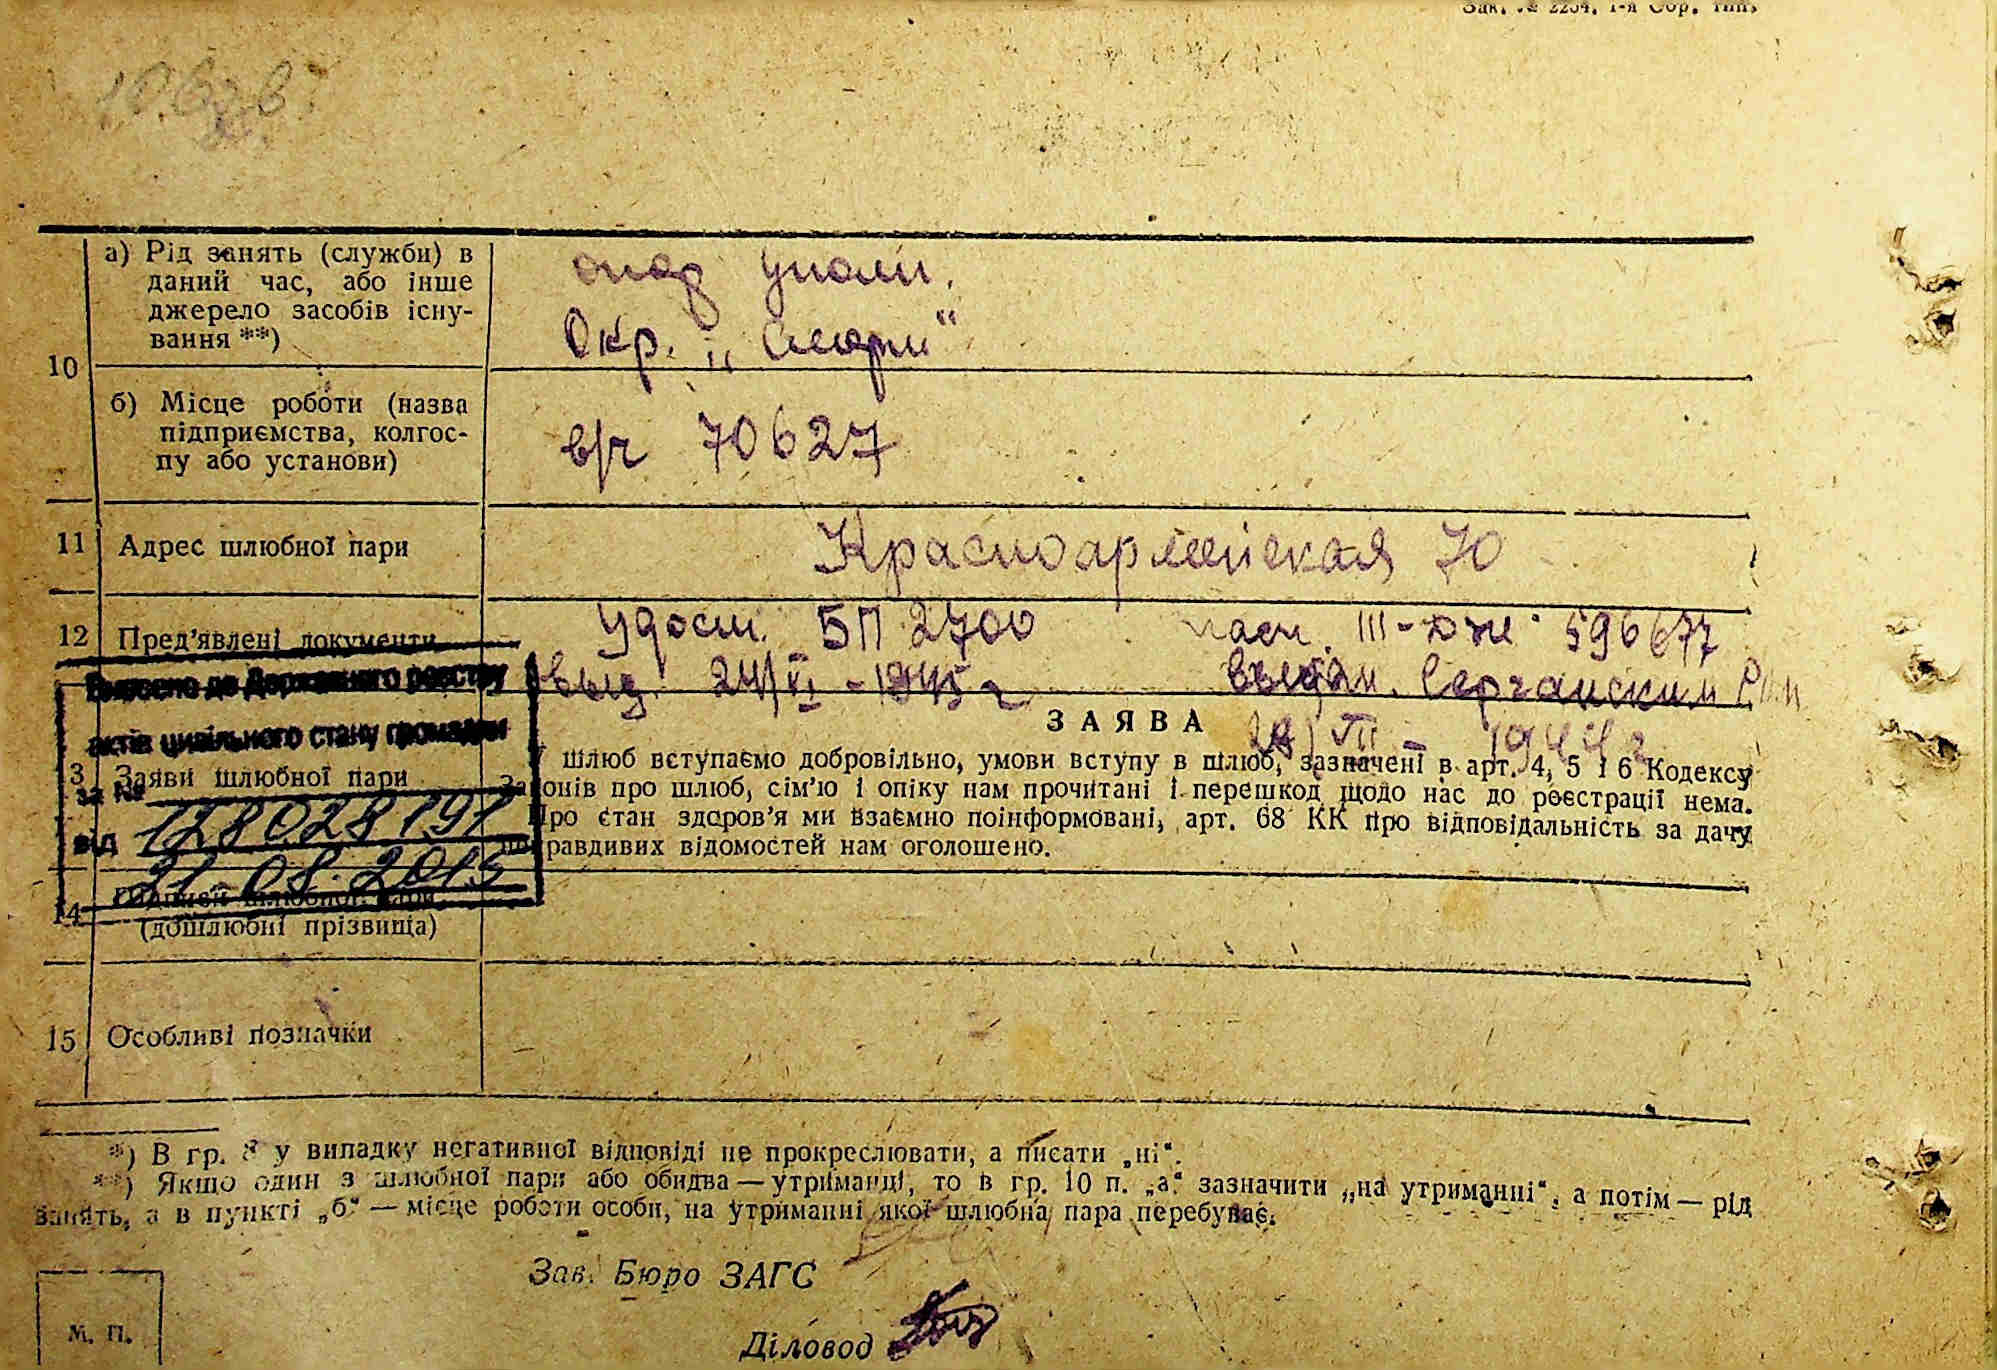 Зак. № 2254. 1-я Сор. тип.
а) Рід занять (служби) в
даний час, або інше
джерело засобів існу-
вання **)
10
Окр. „Смерш“
б) Місце роботи (назва
підприємства, колгос-
пу або установи)
в/ч 70627
11 Адрес шлюбної пари
Красноармейская 70
12 Пред’явлені документи
Удост. БП 2700
выд. 24/VI - 1945 г
пасп. III-ЮЖ 596677
выдан. Сергачским
28/VII - 1944 г
Внесено до Державного реєстру
актів цивільного стану громадян
за № 128028191
від 21.08.2015
3 Заяви шлюбної пари
ЗАЯВА
У шлюб вступаємо добровільно, умови вступу в шлюб, зазначені в арт. 4, 5 і 6 Кодексу
Законів про шлюб, сім’ю і опіку нам прочитані і перешкод щодо нас до реєстрації нема.
Про стан здоров’я ми взаємно поінформовані, арт. 68 КК про відповідальність за дачу
неправдивих відомостей нам оголошено.
14 Підписи шлюбної пари
(дошлюбні прізвища)
15 Особливі позначки
*) В гр. 8 у випадку негативної відповіді не прокреслювати, а писати „ні“.
**) Якщо один з шлюбної пари або обидва — утриманці, то в гр. 10 п. „а“ зазначити „на утриманні“, а потім — рід
занять, а в пункті „б“ — місце роботи особи, на утриманні якої шлюбна пара перебуває.
Зав. Бюро ЗАГС
Діловод
М. П.